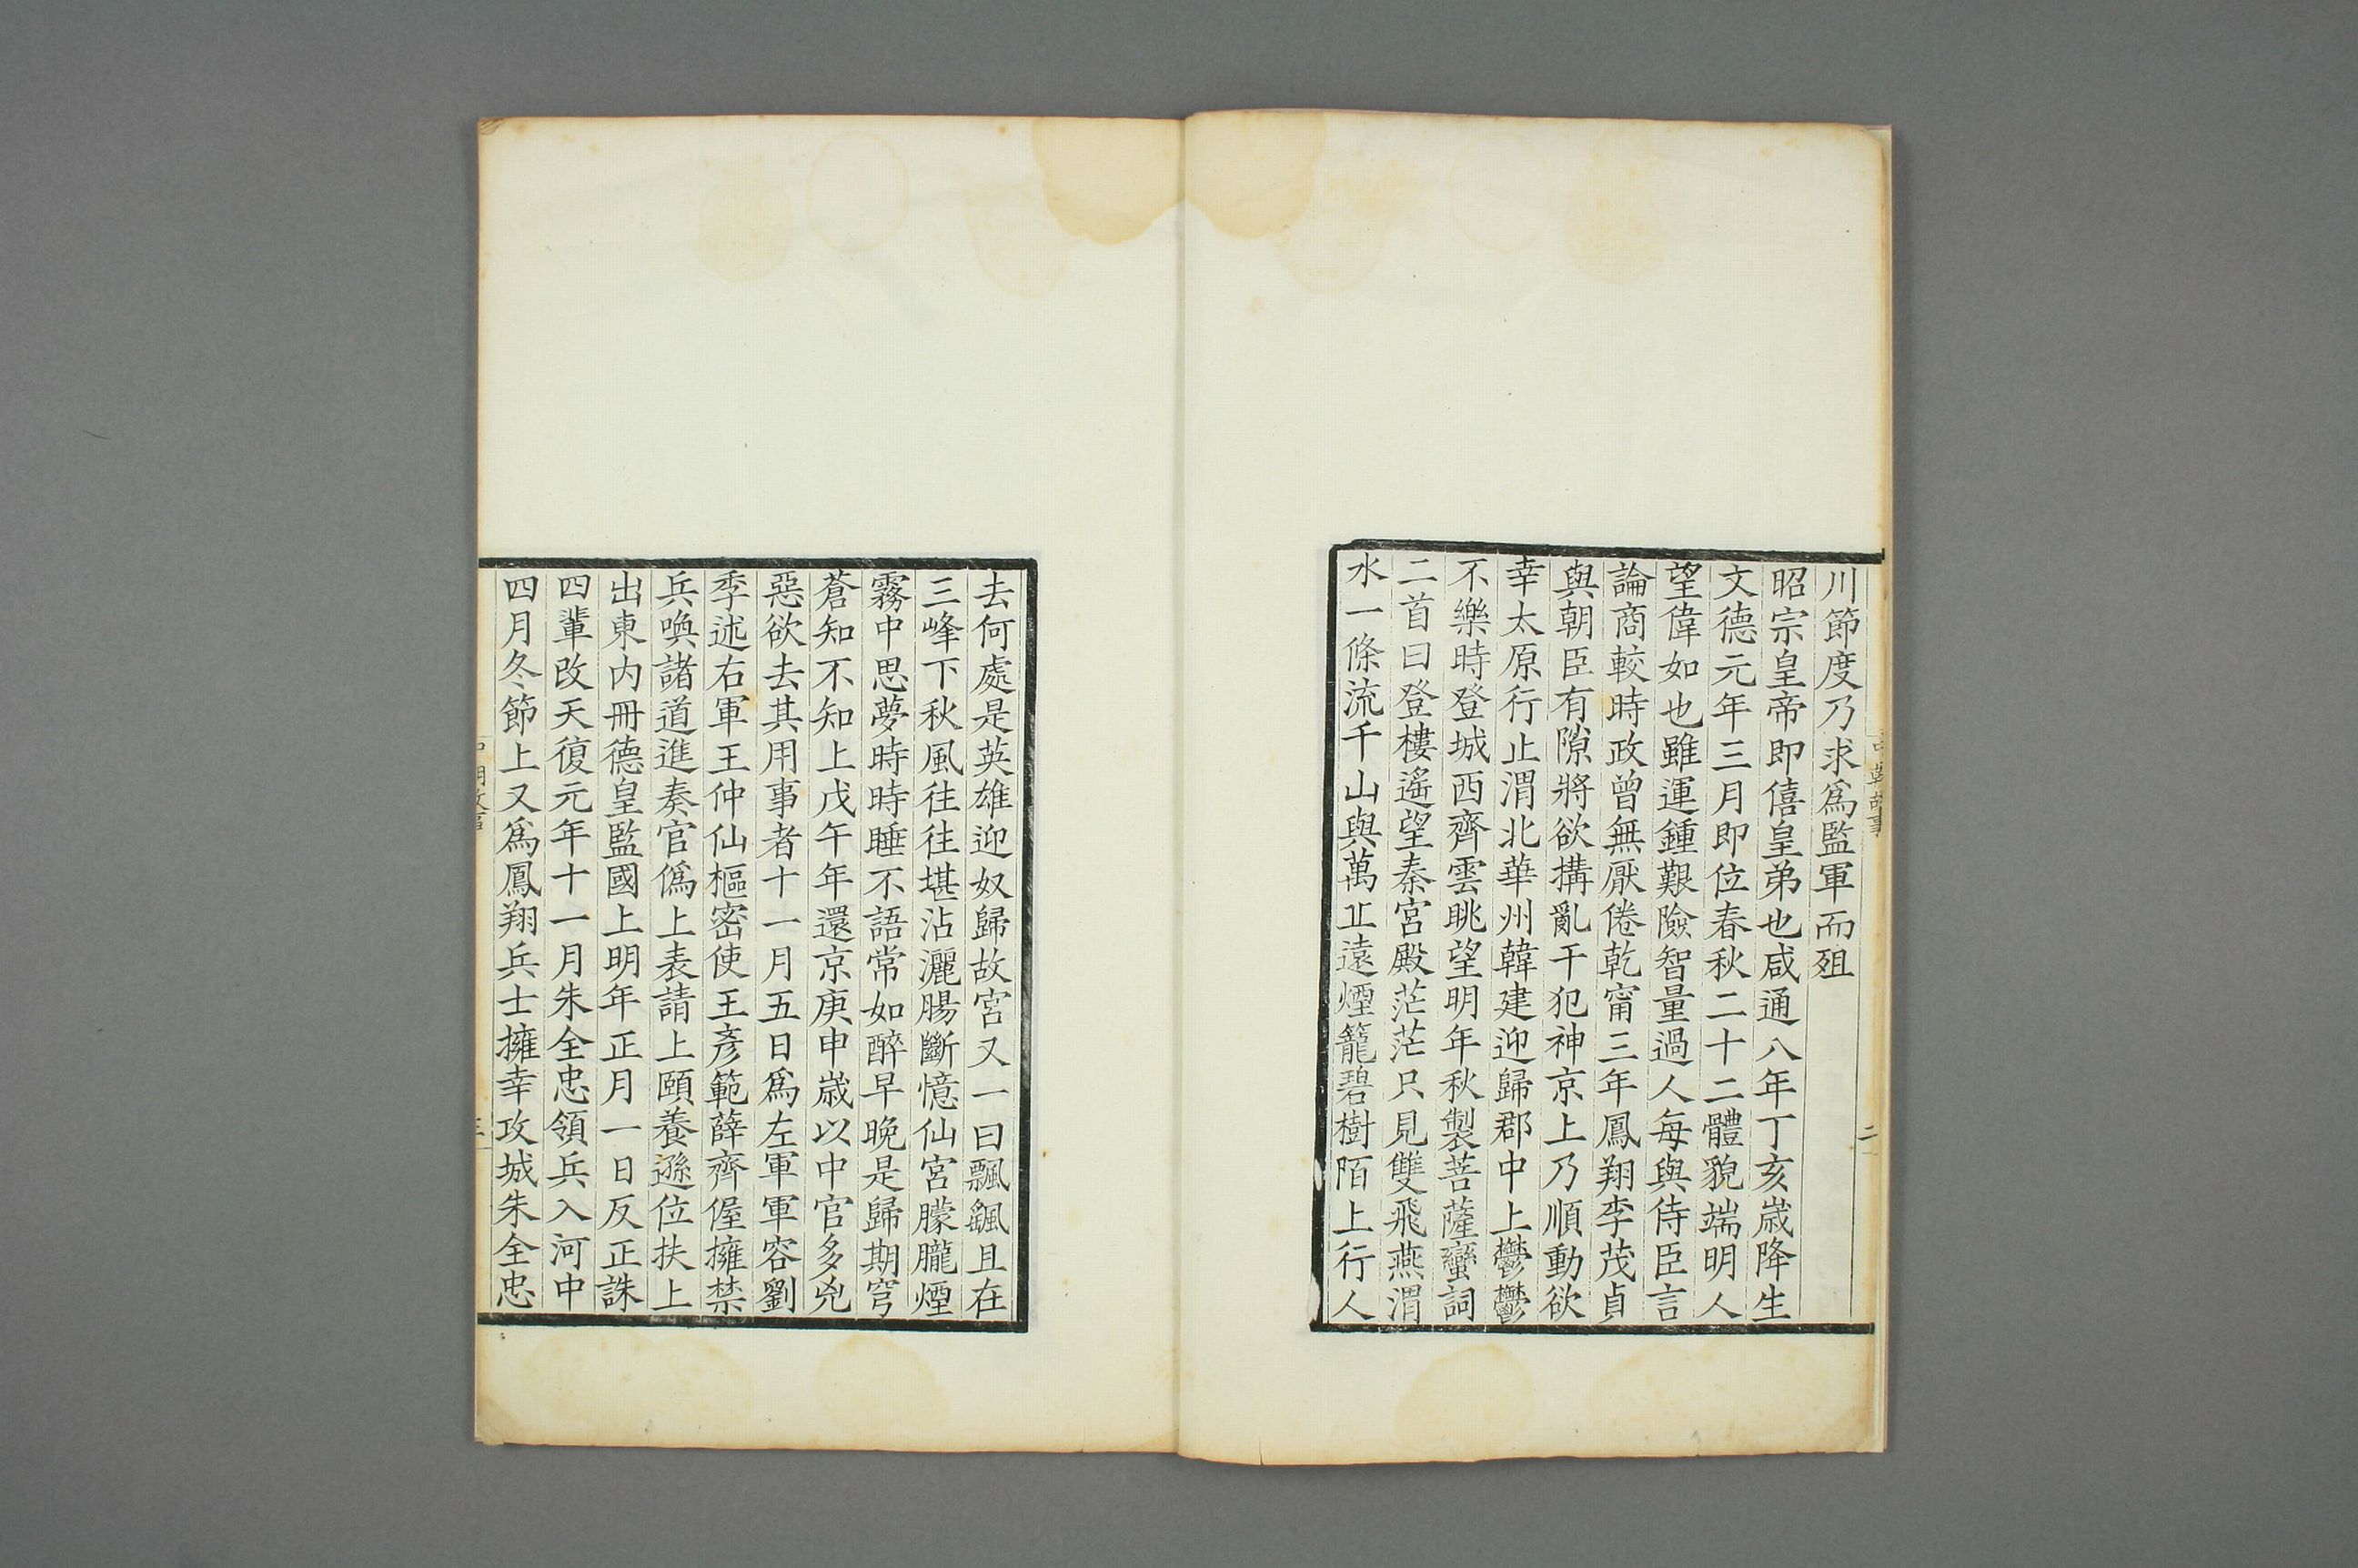 川節度乃求爲監軍而殂
昭宗皇帝即僖皇弟也咸通八年丁亥歲降生
文德元年三月即位春秋二十二體貌端明人
望偉如也雖運鍾艱險智量過人每與侍臣言
論商較時政曾無厭倦乾甯三年鳳翔李茂貞
與朝臣有隙將欲搆亂干犯神京上乃順動欲
幸太原行止渭北華州韓建迎歸郡中上鬱鬱
不樂時登城西齊雲眺望明年秋製菩薩蠻詞
二首曰登樓遙望秦宮殿茫茫只見雙飛燕渭
水一條流千山與萬丠遠煙籠碧樹陌上行人
去何處是英雄迎奴歸故宮又一曰飄颻且在
三峰下秋風往往堪沾灑腸斷憶仙宮朦朧煙
霧中思夢時時睡不語常如醉早晚是歸期穹
蒼知不知上戊午年還京庚申歲以中官多兇
惡欲去其用事者十一月五日爲左軍軍容劉
季述右軍王仲仙樞密使王彥範薛齊偓擁禁
兵喚諸道進奏官僞上表請上頤養遜位扶上
出東內冊德皇監國上明年正月一日反正誅
四輩改天復元年十一月朱全忠領兵入河中
四月冬節上又爲鳳翔兵士擁幸攻城朱全忠